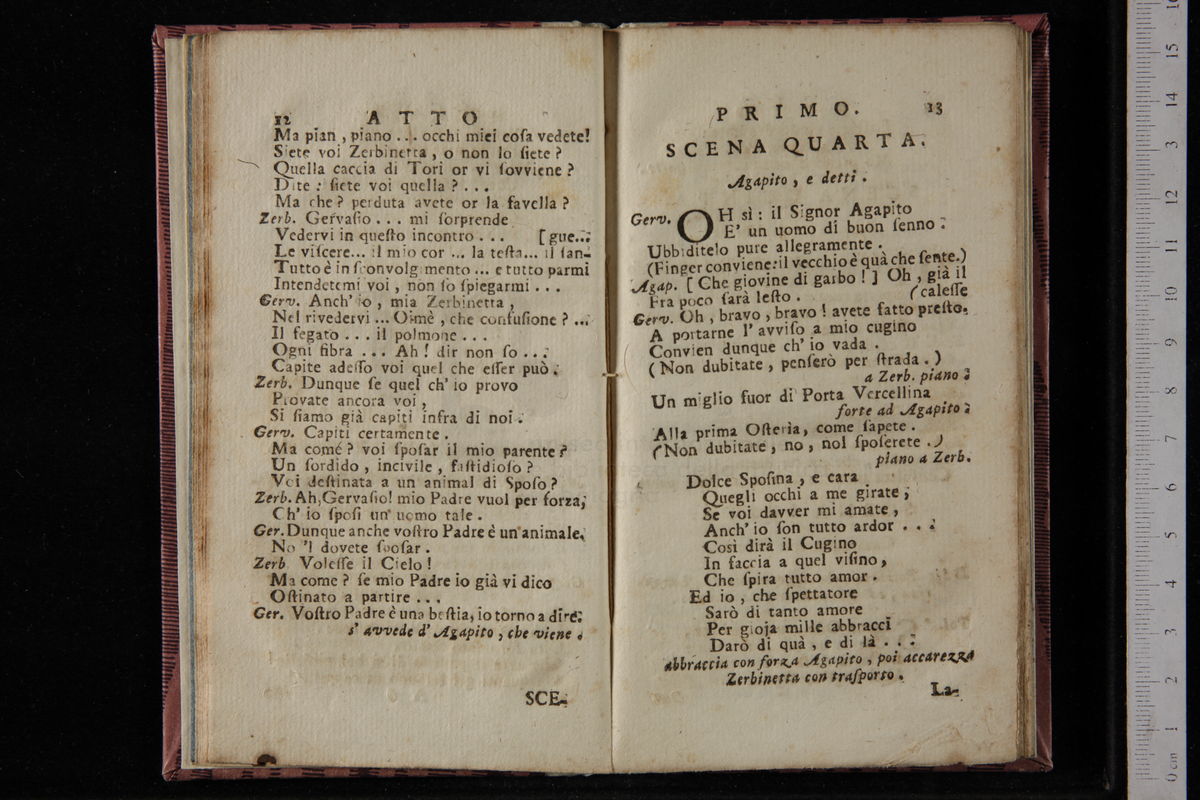 12 ATTO
Ma pian , piano . . . occhi miei coſa vedete!
Siete voi Zerbinetta , o non lo ſiete ?
Quella caccia di Tori or vi ſovviene ?
Dite : ſiete voi quella ? . . .
Ma che ? perduta avete or la favella ?
Zerb. Gervaſio . . . mi ſorprende
Vedervi in queſto incontro . . . [ gue...
Le viſcere... il mio cor ... la teſta... il ſan-
Tutto è in ſconvolgimento ... e tutto parmi
Intendetemi voi , non ſo ſpiegarmi . . .
Gerv. Anch' io , mia Zerbinetta ,
Nel rivedervi ... Oimè , che confuſione ? ...
Il fegato . . . il polmone . . .
Ogni fibra . . . Ah ! dir non ſo . . .
Capite adeſſo voi quel che eſſer può .
Zerb. Dunque ſe quel ch' io provo
Provate ancora voi ,
Si ſiamo già capiti infra di noi .
Gerv. Capiti certamente .
Ma comé ? voi ſpoſar il mio parente ?
Un ſordido , incivile , faſtidioſo ?
Voi deſtinata a un animal di Spoſo ?
Zerb. Ah, Gervaſio! mio Padre vuol per forza,
Ch' io ſpoſi un uomo tale .
Ger. Dunque anche voſtro Padre è un animale,
No 'l dovete ſpoſar .
Zerb. Voleſſe il Cielo !
Ma come ? ſe mio Padre io già vi dico
Oſtinato a partire . . .
Ger. Voſtro Padre è una beſtia, io torno a dire.
s' avvede d' Agapito , che viene .
SCE-
PRIMO. 13
SCENA QUARTA.
Agapito , e detti .
Gerv. OH sì : il Signor Agapito
E' un uomo di buon ſenno .
Ubbiditelo pure allegramente .
(Finger conviene: il vecchio è quà che ſente.)
Agap. [ Che giovine di garbo ! ] Oh , già il
Fra poco ſarà leſto . (caleſſe
Gerv. Oh , bravo , bravo ! avete fatto preſto.
A portarne l' avviſo a mio cugino
Convien dunque ch' io vada .
(Non dubitate , penſerò per ſtrada . )
a Zerb. piano .
Un miglio fuor di Porta Vercellina
forte ad Agapito .
Alla prima Oſteria, come ſapete .
(Non dubitate , no , nol ſpoſerete .)
piano a Zerb.
Dolce Spoſina , e cara
Quegli occhi a me girate ;
Se voi davver mi amate ,
Anch' io ſon tutto ardor . . .
Così dirà il Cugino
In faccia a quel viſino ,
Che ſpira tutto amor .
Ed io , che ſpettatore
Sarò di tanto amore
Per gioja mille abbracci
Darò di quà , e di là . . .
abbraccia con forza Agapito , poi accarezza
Zerbinetta con traſporto .
La-
15
14
13
12
11
10
9
8
7
6
5
4
3
2
1
0 cm